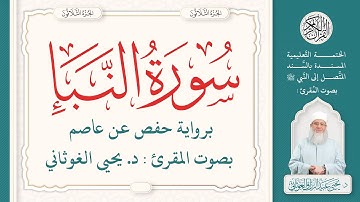 الجزء الثلاثون
الجزء الثلاثون
سُورَةُ النَّبَإِ
برواية حفص عن عاصم
بصوت المقرئ : د. يحيى الغوثاني
القرآن الكريم
الختمة التعليمية
المسندة بالسَّند
المتَّصل إلى النَّبي ﷺ
بصوت المُقرئ:
د. يحيى عبد الرزاق الغوثاني